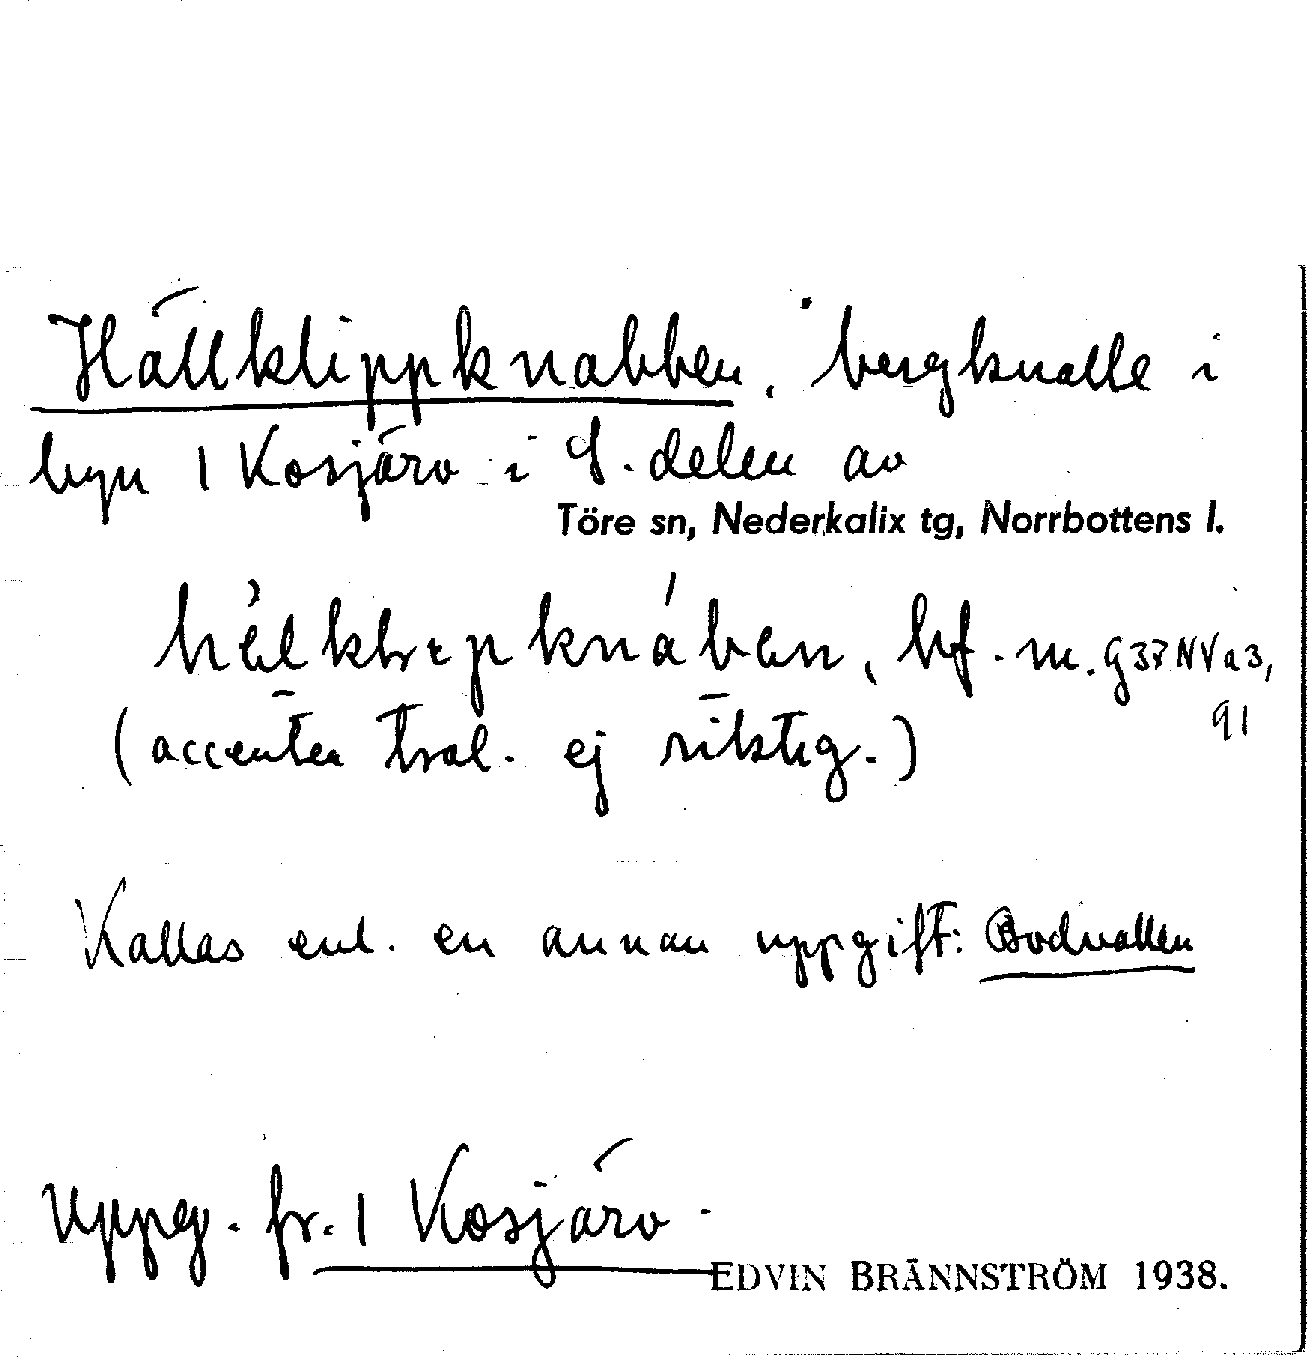 Hällklippknabben, bergknalle i
byn 1 Kosjärv i S. delen av
Töre sn, Nederkalix tg, Norrbottens l.
bf. m.
(accenten trol. ej riktig.)
91
Kallas enl. en annan uppgift: Bodvallen
Uppg. fr. 1 Kosjärv.
EDVIN BRÄNNSTRÖM 1938.